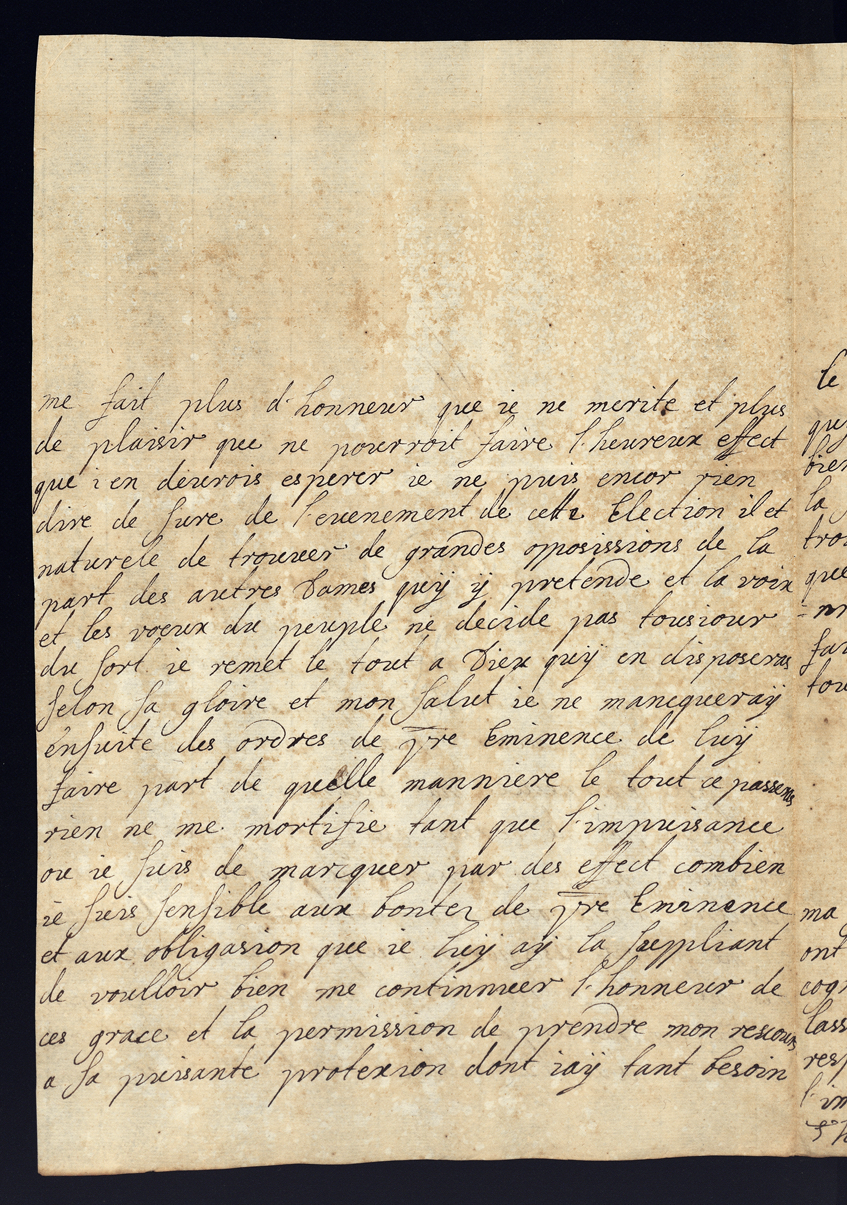 me fait plus d'honneur que ie ne merite et plus
de plaisir que ne pourroit faire l'heureux effect
que i en deurois esperer ie ne puis encor rien
dire de sure de l'euenement de cette Election il et
naturele de trouuer de grandes opposissions de la
part des autres Dames quÿ ÿ pretende et la voix
et les voeux du peuple ne decide pas tousiour
du sort ie remet le tout a Dieu quÿ en disposeras
selon sa gloire et mon salut ie ne mancqueraÿ
ensuite des ordres de vre Eminence de luÿ
faire part de quelle manniere le tout ce passeras
rien ne me mortifie tant que l'impuisance
ou ie suis de marcquer par des effect combien
ie suis sensible aux bontez de vre Eminence
et aux obligasion que ie luÿ aÿ la suppliant
de voulloir bien me continnuer l'honneur de
ces grace et la permission de prendre mon rescours
a sa puisante protexion dont iaÿ tant besoin
le
bien
la
que
ma
ont